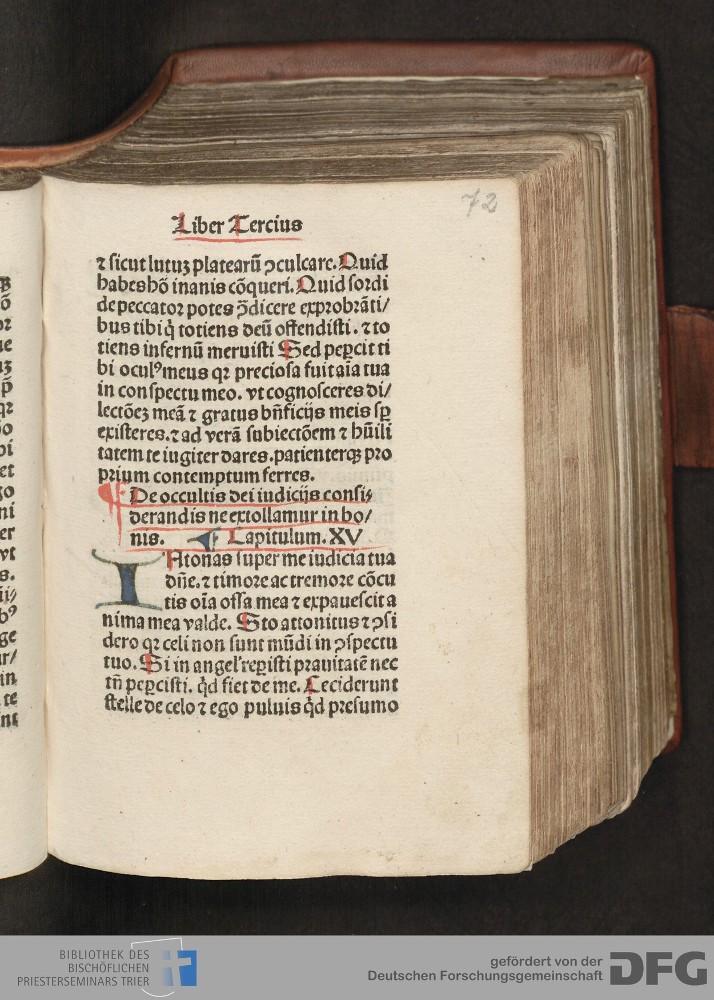 72
Liber Tercius
⁊ sicut lutuꝫ platearū ꝯculcare. Quid
habes hō inanis cōqueri. Quid sordi
de peccator potes ꝯ̄dicere exprobrāti/
bus tibi q̇ totiens deū offendisti. ⁊ to
tiens infernū meruisti Sed peꝑcit ti
bi oculꝰ meus qꝛ preciosa fuit aīa tua
in conspectu meo. vt cognosceres di/
lectōeꝫ meā ⁊ gratus bn̄ficijs meis sꝑ
existeres. ⁊ ad verā subiectōem ⁊ hūili
tatem te iugiter dares. patienterqꝫ pro
prium contemptum ferres.
¶ De occultis dei iudicijs consi⸗
derandis ne extollamur in bo/
nis. ¶ Capitulum. XV
INtonas super me iudicia tua
dn̄e. ⁊ timore ac tremore cōcu
tis oīa ossa mea ⁊ expauescit a
nima mea valde. Sto attonitus ⁊ ꝯsi
dero qꝛ celi non sunt mūdi in ꝯspectu
tuo. Si in angel' reꝑisti prauitatē nec
tn̄ peꝑcisti. qd̓ fiet de me. Ceciderunt
stelle de celo ⁊ ego puluis qd̓ presumo
BIBLIOTHEK DES
BISCHÖFLICHEN
PRIESTERSEMINARS TRIER
gefördert von der
Deutschen Forschungsgemeinschaft
DFG